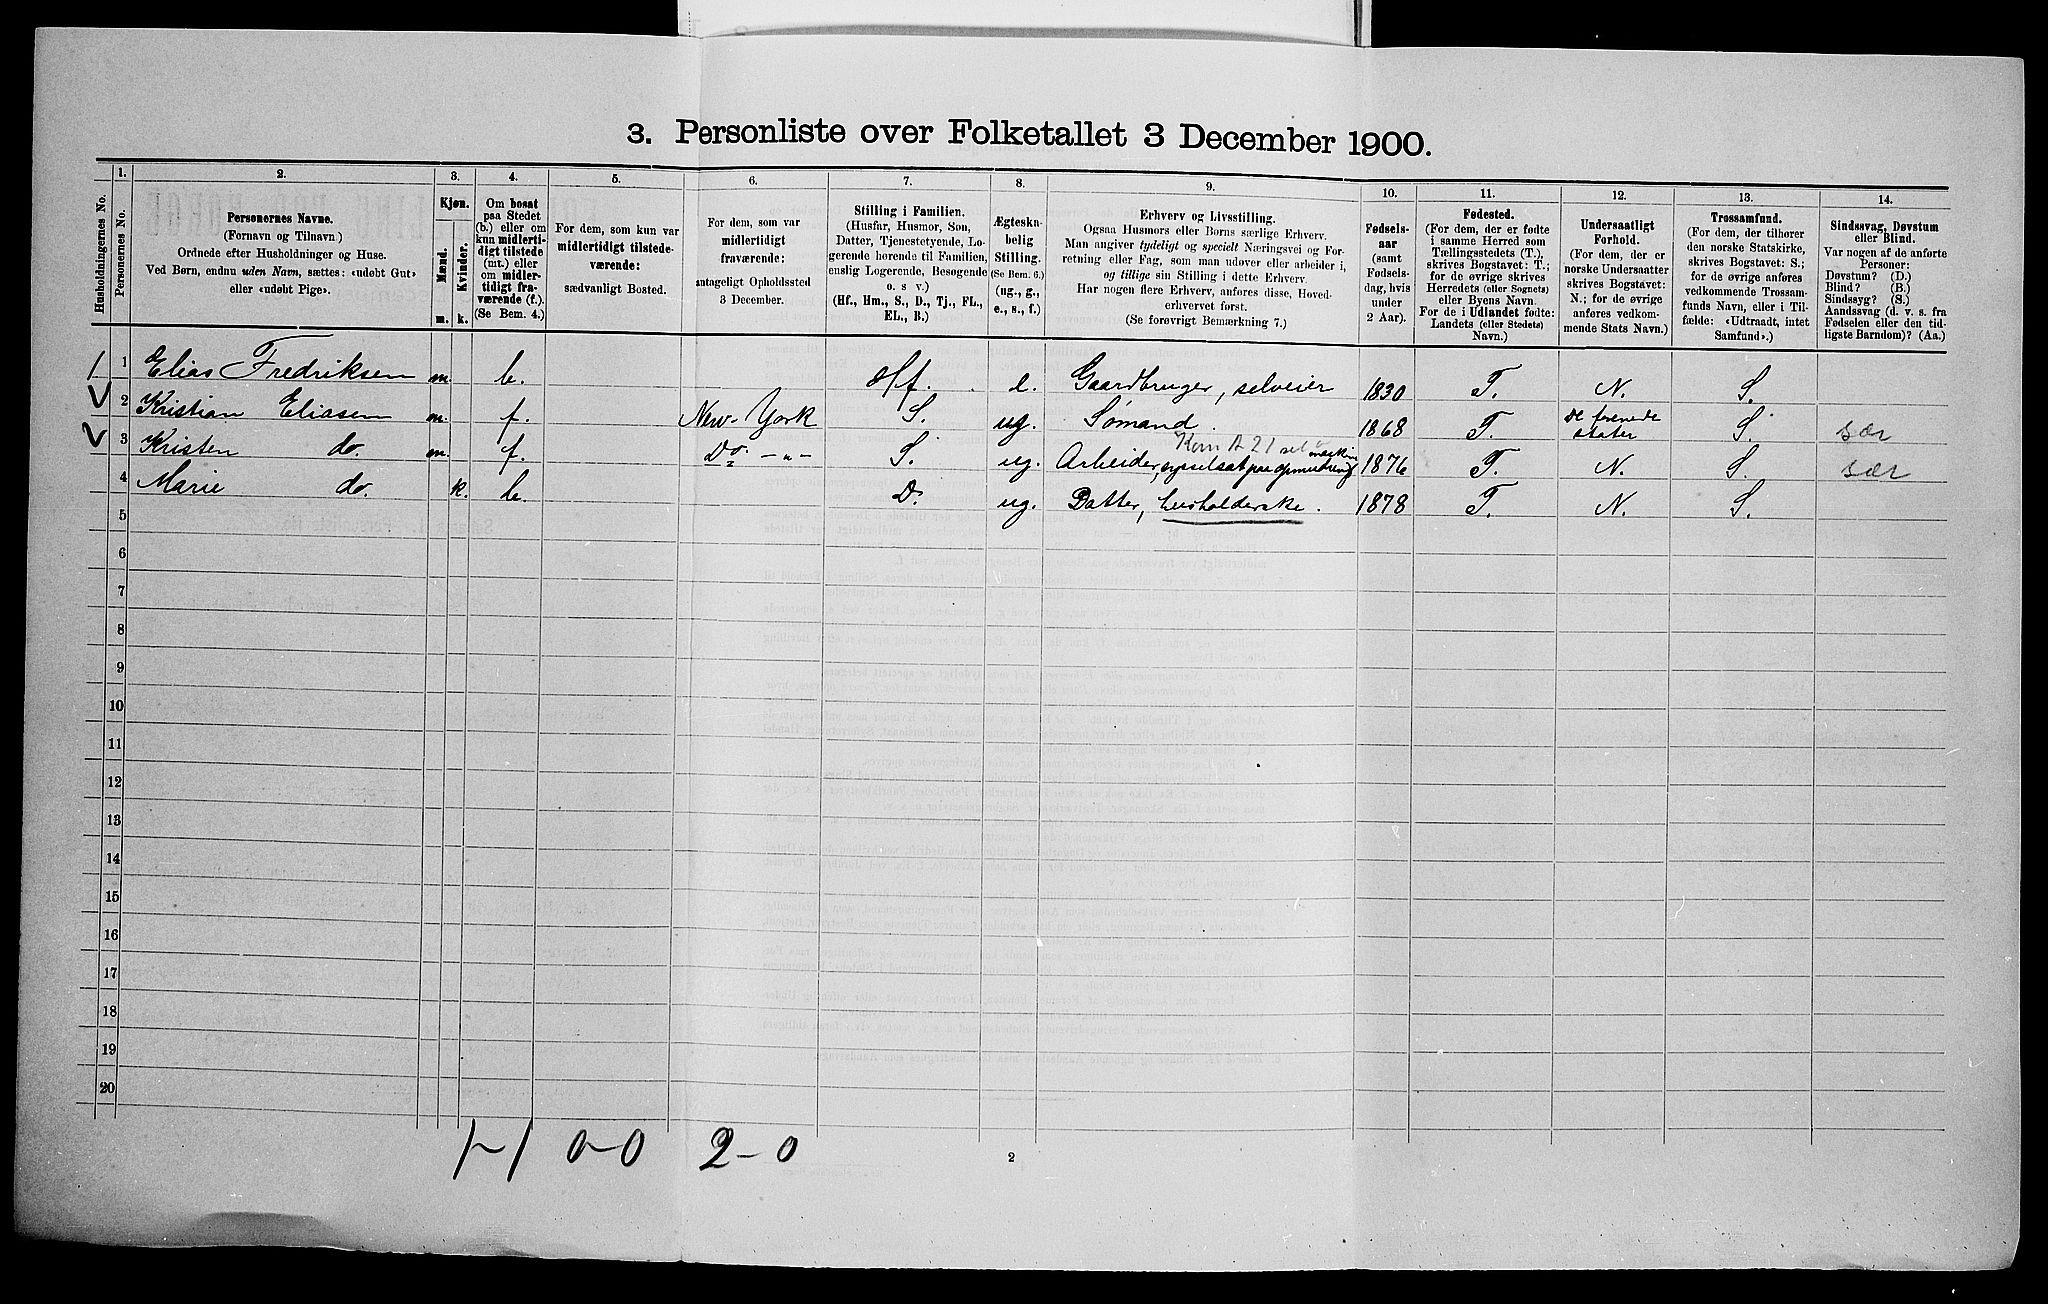 3. Personliste over Folketallet 3 December 1900.
1. 2. 3. 4. 5. 6. 7. 8. 9. 10. 11. 12. 13. 14.
Husholdningernes No.
Personernes No.
Personernes Navne.
(Fornavn og Tilnavn)
Ordnede efter Husholdninger og Huse.
Ved Børn, endnu uden Navn, sættes: «udøbt Gut»
eller «udøbt Pige».
Kjøn.
Mænd.
Kvinder.
m. k.
Om bosat
paa Stedet
(b.) eller om
kun midlerti-
digt tilstede
(mt.) eller
om midler-
tidigt fra-
værende (f.).
(Se Bem. 4.)
For dem, som kun var
midlertidigt tilstede-
værende:
sædvanligt Bosted.
For dem, som var
midlertidigt
fraværende:
antageligt Opholdssted
3 December.
Stilling i Familien.
(Husfar, Husmor, Søn,
Datter, Tjenestetyende, Lo-
gerende hørende til Familien,
enslig Logerende, Besøgende
o. s v.)
(Hf., Hm., S., D., Tj., FL.,
EL., B.)
Ægteska-
belig
Stilling.
(Se Bem. 6.)
(ug., g.,
e., s., f.)
Erhverv og Livsstilling.
Ogsaa Husmors eller Børns særlige Erhverv.
Man angiver tydeligt og specielt Næringsvei og For-
retning eller Fag, som man udover eller arbeider i,
og tillige sin Stilling i dette Erhverv.
Har nogen flere Erhverv, anføres disse, Hoved-
erhvervet først.
(Se forøvrigt Bemærkning 7.)
Fødsels-
aar
(samt
Fødsels-
dag, hvis
under
2 Aar).
Fødested.
(For dem, der er fødte
i samme Herred som
Tællingsstedets (T.),
skrives Bogstavet: T.;
for de øvrige skrives
Herredets (eller Sognets)
eller Byens Navn.
For de i Udlandet fødte:
Landets (eller Stedets)
Navn.)
Undersaatligt
Forhold.
(For dem, der er
norske Undersaatter
skrives Bogstavet:
N.; for de øvrige
anføres vedkom-
mende Stats Navn.)
Trossamfund.
(For dem, der tilhører
den norske Statskirke,
skrives Bogstavet: S.;
for de øvrige anføres
vedkommende Trossam-
funds Navn, eller i Til-
fælde: «Udtraadt, intet
Samfund».)
Sindssvag, Døvstum
eller Blind.
Var nogen af de anførte
Personer:
Døvstum? (D.)
Blind? (B.)
Sindssyg? (S.)
Aandssvag (d. v. s. fra
Fødselen eller den tid-
ligste Barndom)? (Aa.)
1 Elias Fredriksen m. b. Hf. e. Gaardbruger, selveier 1830 T. N. S.
2 Kristian Eliasen m. f. New-York S. ug. Sømand. 1868 T. De forenede stater S. sær
3 Kristen do. m. f. Do. -„- S. ug. Arbeider, 1876 T. N. S. sær
4 Marie do. k. b. D. ug. Datter, husholderske. 1878 T. N. S.
5
6
7
8
9
10
11
12
13
14
15
16
17
18
19
20
1-1 0-0 2-0
2